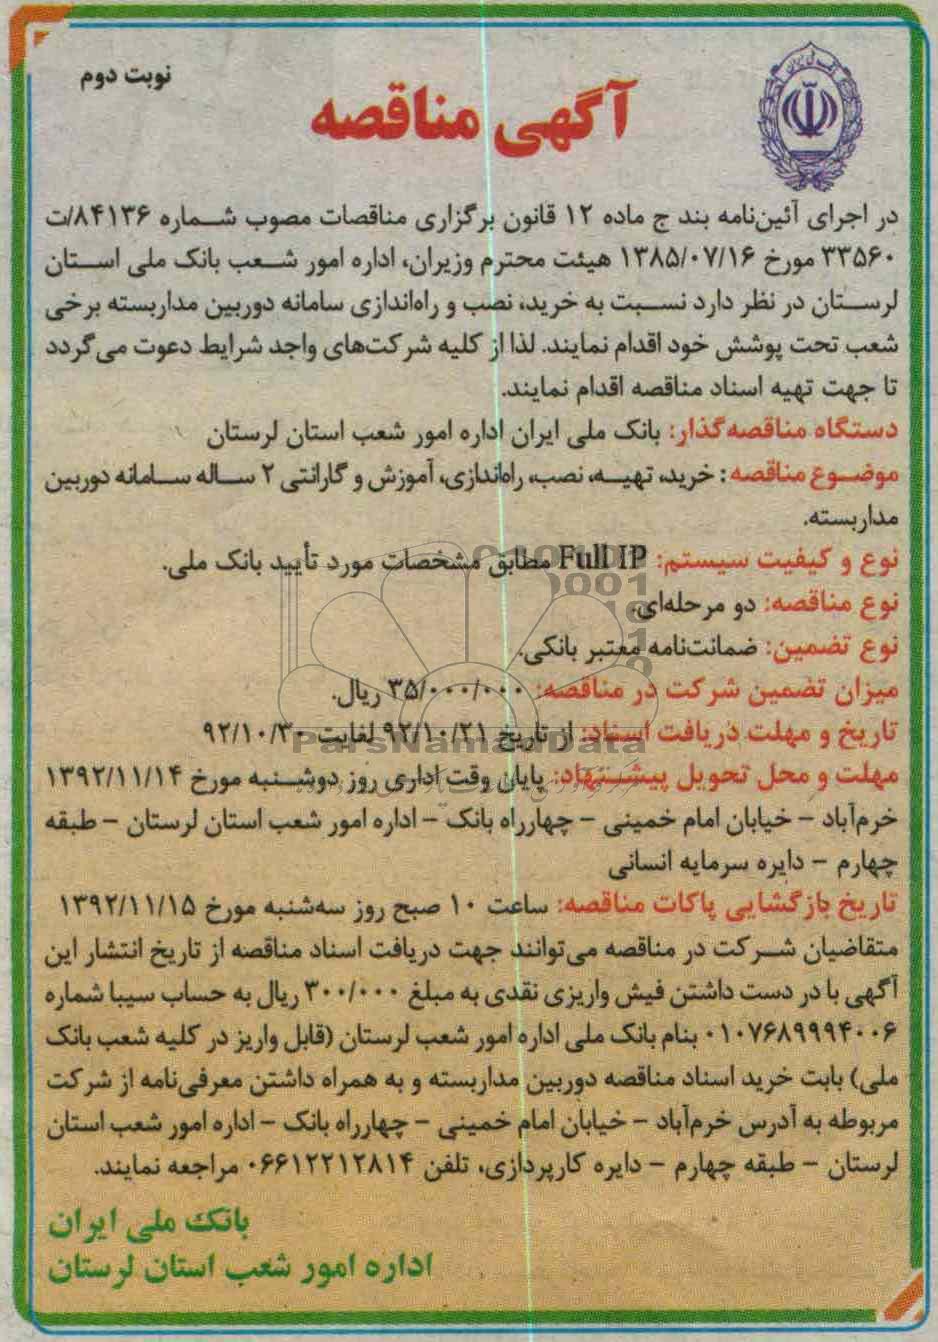 نوبت دوم
آگهی مناقصه
در اجرای آئین‌نامه بند ج ماده ۱۲ قانون برگزاری مناقصات مصوب شماره ۸۴۱۳۶/ت
۳۳۵۶۰ مورخ ۱۳۸۵/۰۷/۱۶ هیئت محترم وزیران، اداره امور شعب بانک ملی استان
لرستان در نظر دارد نسبت به خرید، نصب و راه‌اندازی سامانه دوربین مداربسته برخی
شعب تحت پوشش خود اقدام نمایند. لذا از کلیه شرکت‌های واجد شرایط دعوت می‌گردد
تا جهت تهیه اسناد مناقصه اقدام نمایند.
دستگاه مناقصه‌گذار: بانک ملی ایران اداره امور شعب استان لرستان
موضوع مناقصه: خرید، تهیه، نصب، راه‌اندازی، آموزش و گارانتی ۲ ساله سامانه دوربین
مداربسته.
نوع و کیفیت سیستم: Full IP مطابق مشخصات مورد تأیید بانک ملی.
نوع مناقصه: دو مرحله‌ای.
نوع تضمین: ضمانت‌نامه معتبر بانکی.
میزان تضمین شرکت در مناقصه: ۳۵/۰۰۰/۰۰۰ ریال.
تاریخ و مهلت دریافت اسناد: از تاریخ ۹۲/۱۰/۲۱ لغایت ۹۲/۱۰/۳۰
ParsNamadData
مهلت و محل تحویل پیشنهاد: پایان وقت اداری روز دوشنبه مورخ ۱۳۹۲/۱۱/۱۴
خرم‌آباد – خیابان امام خمینی – چهارراه بانک – اداره امور شعب استان لرستان – طبقه
چهارم – دایره سرمایه انسانی
تاریخ بازگشایی پاکات مناقصه: ساعت ۱۰ صبح روز سه‌شنبه مورخ ۱۳۹۲/۱۱/۱۵
متقاضیان شرکت در مناقصه می‌توانند جهت دریافت اسناد مناقصه از تاریخ انتشار این
آگهی با در دست داشتن فیش واریزی نقدی به مبلغ ۳۰۰/۰۰۰ ریال به حساب سیبا شماره
۰۱۰۷۶۸۹۹۹۴۰۰۶ بنام بانک ملی اداره امور شعب لرستان (قابل واریز در کلیه شعب بانک
ملی) بابت خرید اسناد مناقصه دوربین مداربسته و به همراه داشتن معرفی‌نامه از شرکت
مربوطه به آدرس خرم‌آباد – خیابان امام خمینی – چهارراه بانک – اداره امور شعب استان
لرستان – طبقه چهارم – دایره کارپردازی، تلفن ۰۶۶۱۲۲۱۲۸۱۴ مراجعه نمایند.
بانک ملی ایران
اداره امور شعب استان لرستان